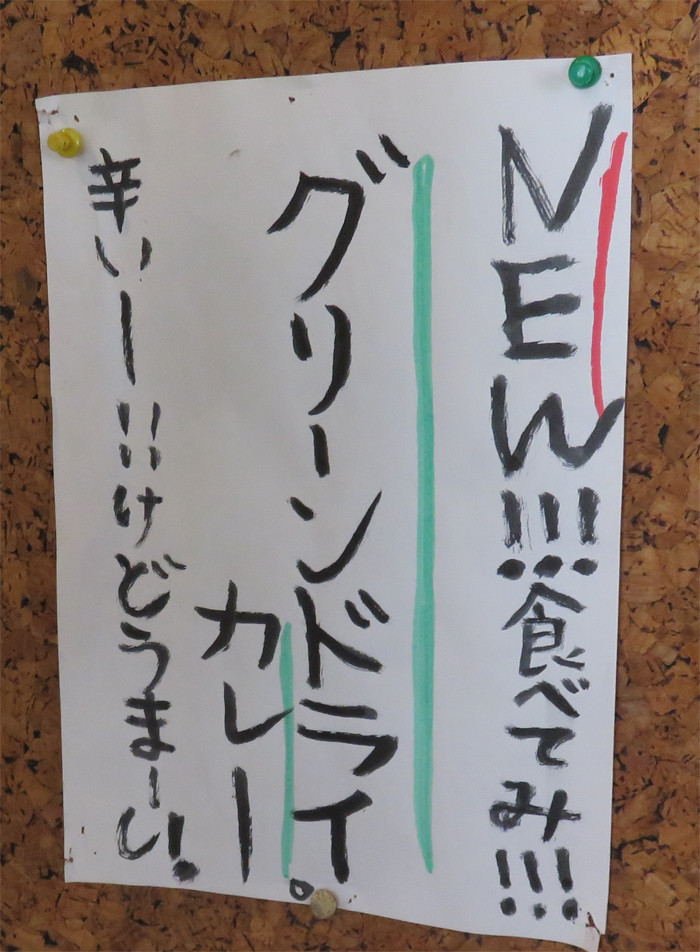 NEW!!!食べてみ!!!
グリーンドライ
カレー。
辛いー!!けどうまーい!